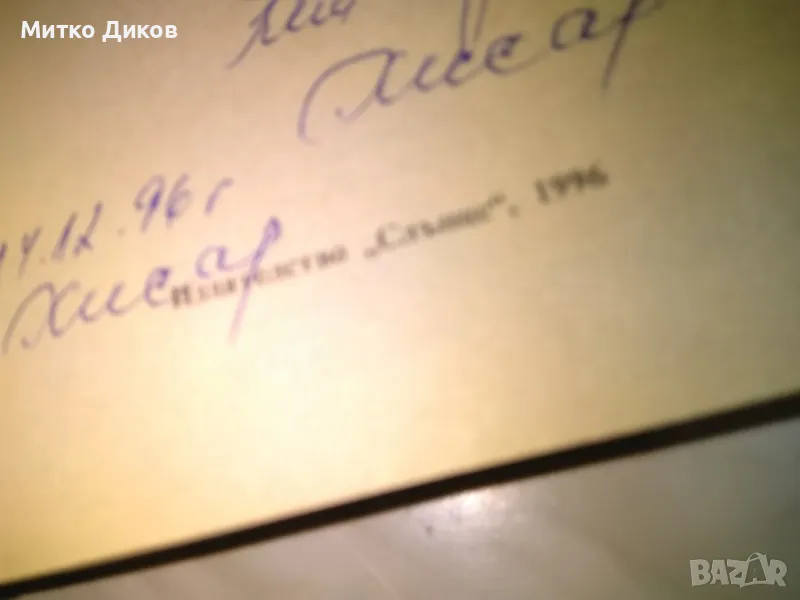 Митко Диков
Хисар
14.12.96 г
Хисар
Издателство „Слънце“, 1996
BAZAR